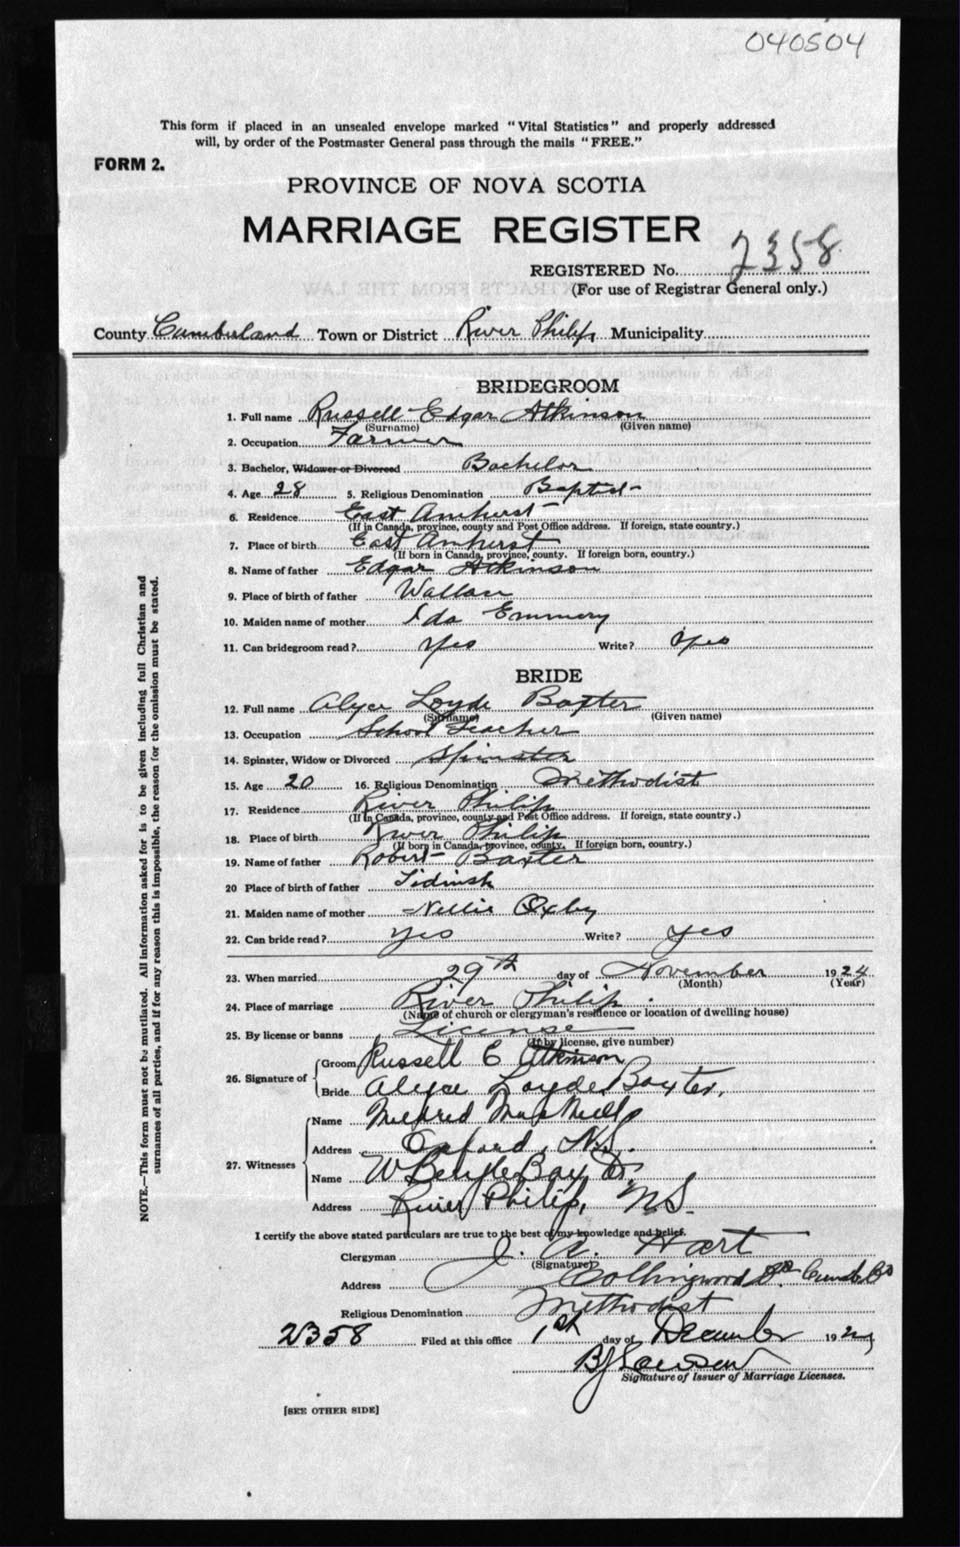 040504
This form if placed in an unsealed envelope marked "Vital Statistics" and properly addressed
will, by order of the Postmaster General pass through the mails "FREE."
FORM 2.
PROVINCE OF NOVA SCOTIA
MARRIAGE REGISTER
REGISTERED No. 2358
(For use of Registrar General only.)
County Cumberland Town or District River Philip, Municipality
BRIDEGROOM
1. Full name Russell Edgar Atkinson
(Surname) (Given name)
2. Occupation Farmer
3. Bachelor, Widower or Divorced Bachelor
4. Age 28 5. Religious Denomination Baptist
6. Residence East Amherst
(If in Canada, province, county and Post Office address. If foreign, state country.)
7. Place of birth East Amherst
(If born in Canada, province, county. If foreign born, country.)
8. Name of father Edgar Atkinson
9. Place of birth of father Wallace
10. Maiden name of mother Ida Emmery
11. Can bridegroom read? Yes Write? Yes
BRIDE
12. Full name Alyce Loyde Baxter
(Surname) (Given name)
13. Occupation School Teacher
14. Spinster, Widow or Divorced Spinster
15. Age 20 16. Religious Denomination Methodist
17. Residence River Philip
(If in Canada, province, county and Post Office address. If foreign, state country.)
18. Place of birth River Philip
(If born in Canada, province, county. If foreign born, country.)
19. Name of father Robert Baxter
20 Place of birth of father Tidnish
21. Maiden name of mother Nellie Oxley
22. Can bride read? yes Write? yes
23. When married 29th day of November 1924
(Month) (Year)
24. Place of marriage River Philip.
(Name of church or clergyman's residence or location of dwelling house)
25. By license or banns License
(If by license, give number)
26. Signature of Groom Russell E Atkinson
Bride Alyce Loyde Baxter.
27. Witnesses Name Mildred Mae
Address Oxford, N.S.
Name W
Address River Philip, N.S.
I certify the above stated particulars are true to the best of my knowledge and belief.
Clergyman J. A. Hart
(Signature)
Address Collingwood
Religious Denomination Methodist
2358 Filed at this office 1st day of December 192
Signature of Issuer of Marriage Licenses.
[SEE OTHER SIDE]
NOTE.—This form must not be mutilated. All information asked for is to be given including full Christian and
surnames of all parties, and if for any reason this is impossible, the reason for the omission must be stated.